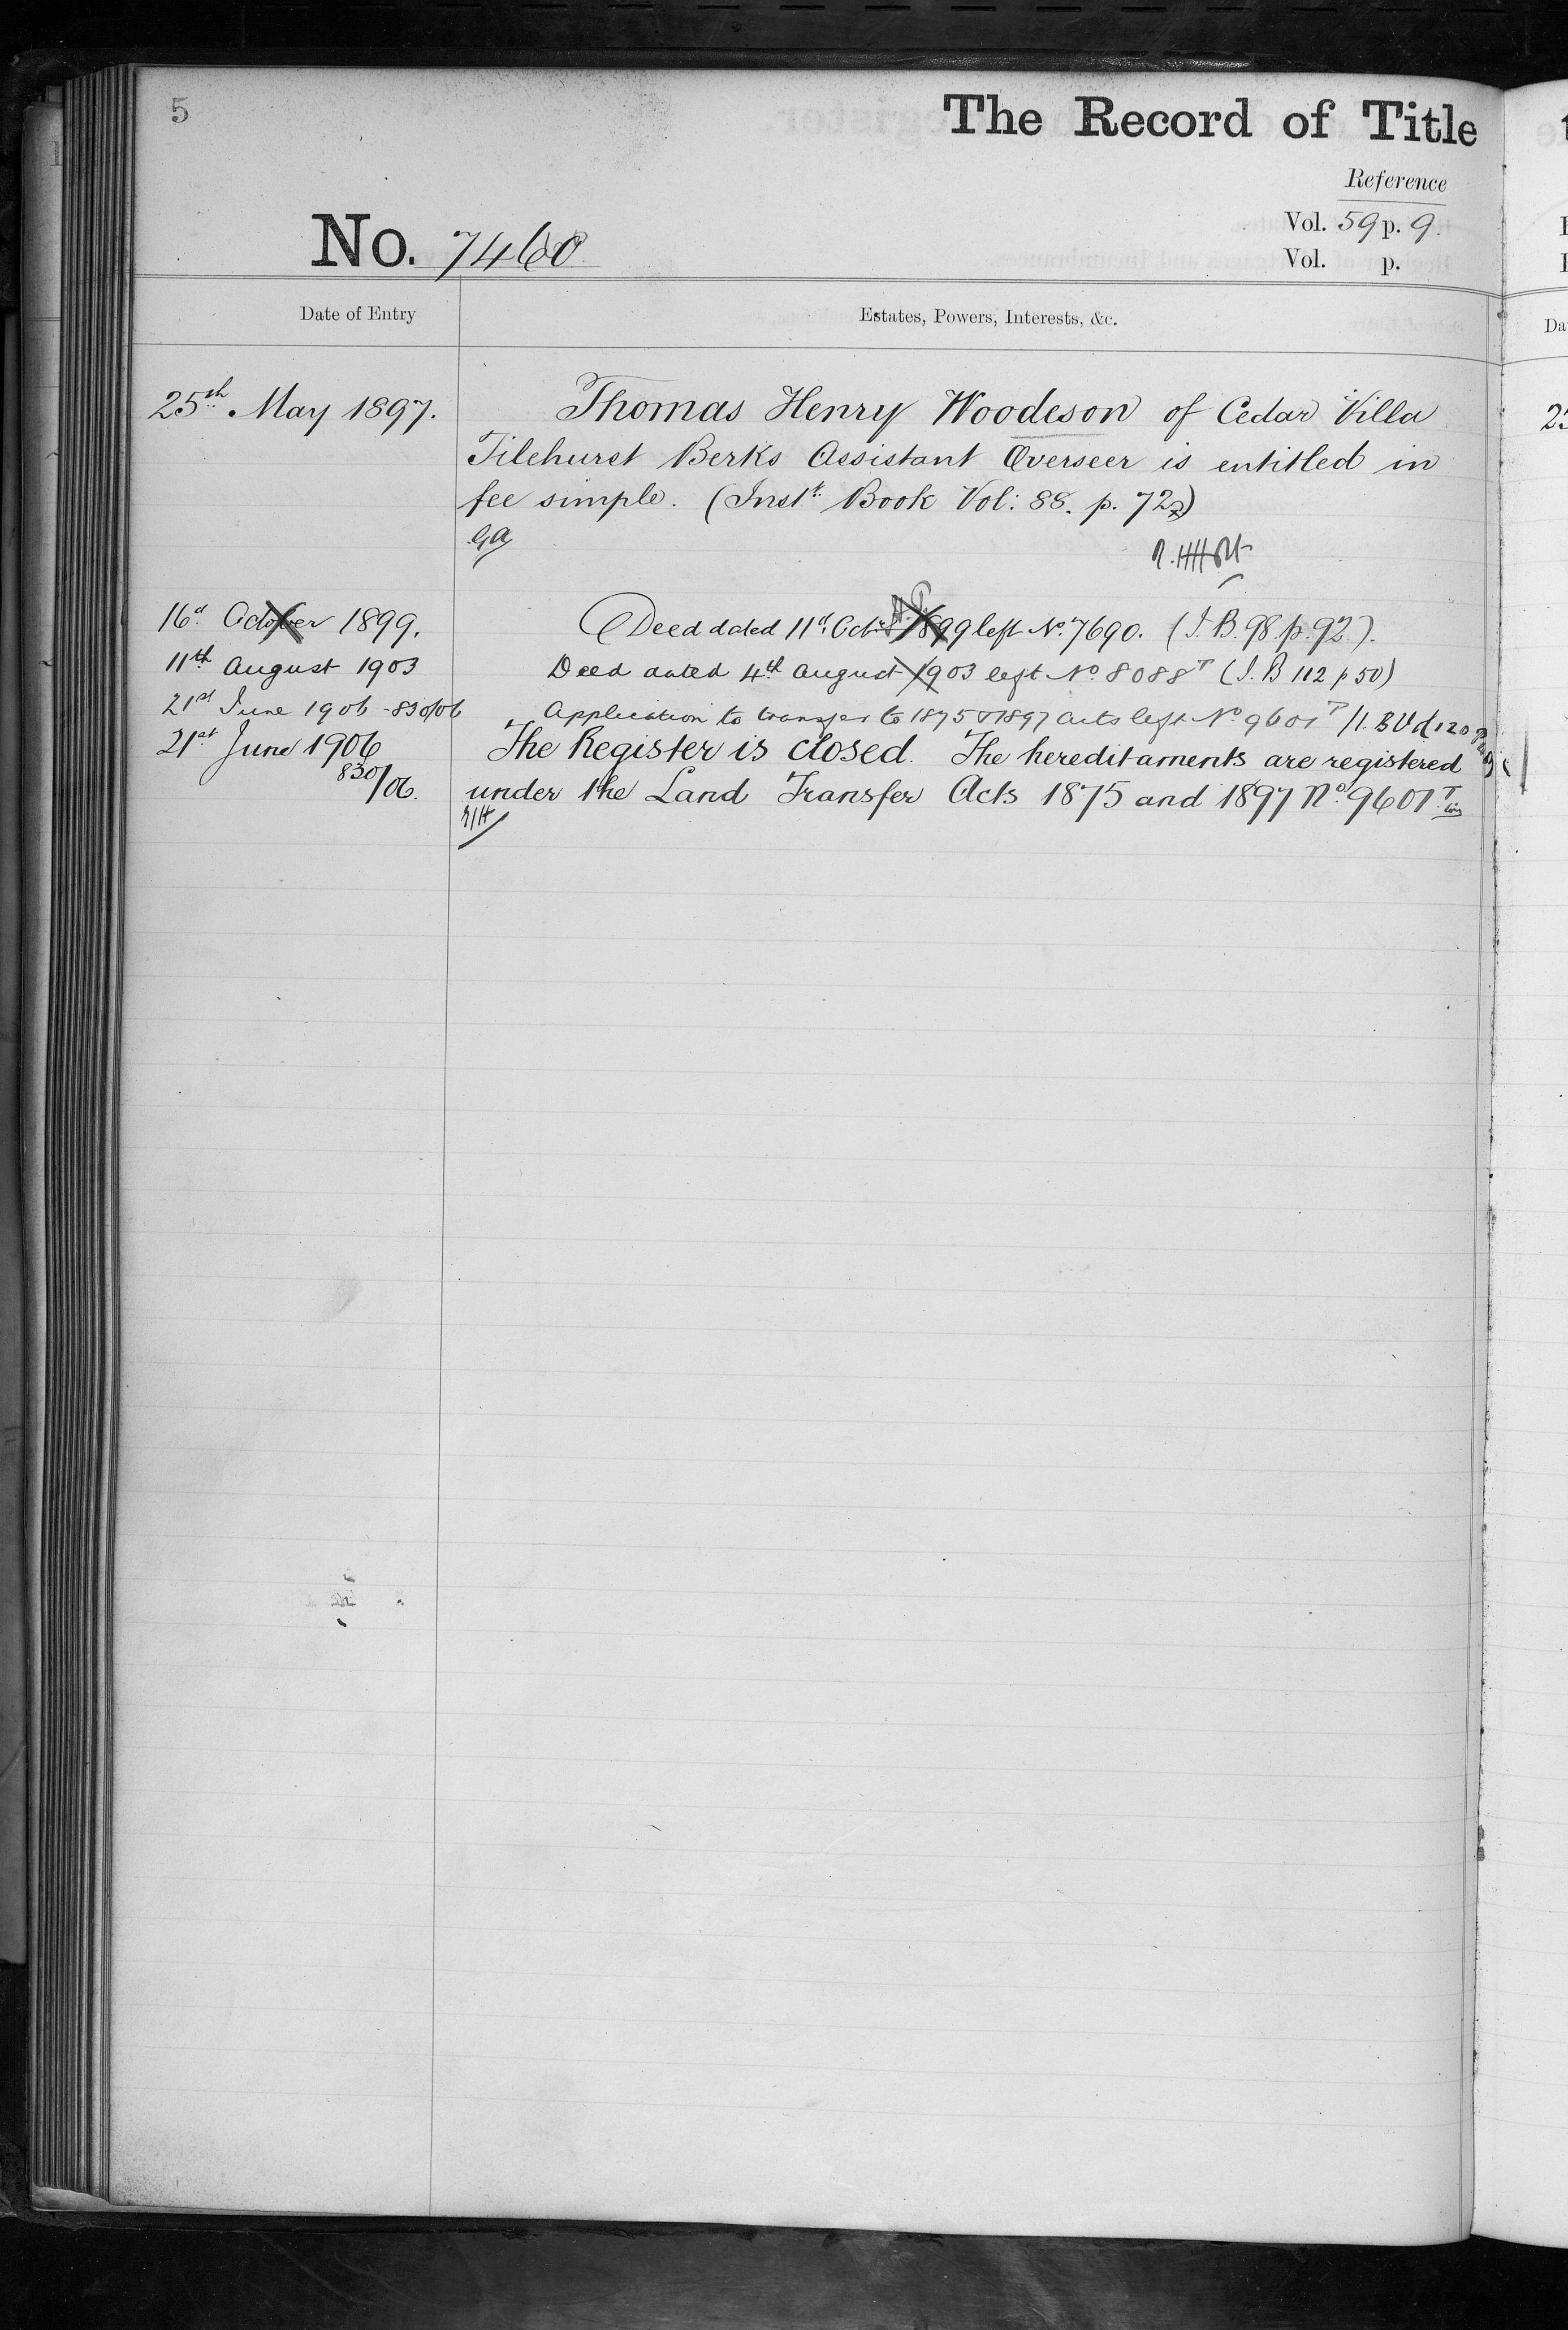 5
The Record of Title
Reference
No. 7460
Vol. 59 p. 9.
Vol. p.
Date of Entry
Estates, Powers, Interests, &c.
25th May 1897.
Thomas Henry Woodeson of Cedar Villa
Tilehurst Berks Assistant Overseer is entitled in
fee simple. (Inst. Book Vol: 88. p. 72)
16th October 1899.
Deed dated 11th Octr 1899 left No. 7690. (I. B. 98. p. 92.).
11th August 1903
Deed dated 4th August 1903 left No. 8088T (I. B 112 p 50)
21st June 1906 - 830/06
Application to transfer to 1875 & 1897 Acts left No 9601T /I. B Vol 120
21st June 1906
830/06.
The Register is closed. The hereditaments are registered
under the Land Transfer Acts 1875 and 1897 No. 9601T